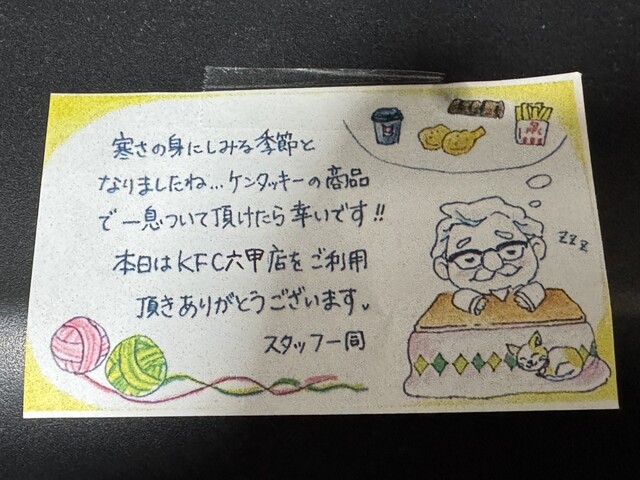 寒さの身にしみる季節と
なりましたね…ケンタッキーの商品
で一息ついて頂けたら幸いです!!
本日はKFC六甲店をご利用
頂きありがとうございます。
スタッフ一同
zzz